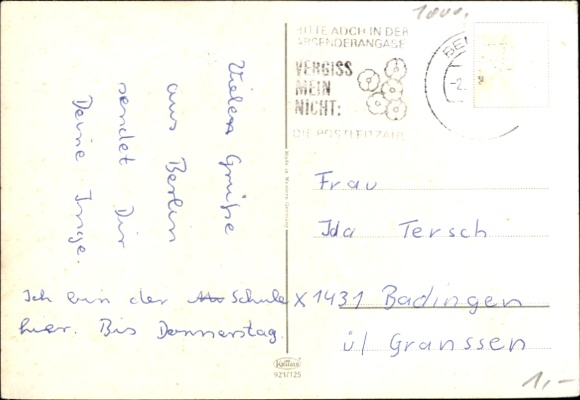 1000.
BITTE AUCH IN DER
ABSENDERANGABE
VERGISS
MEIN
NICHT:
DIE POSTLEITZAHL
BE
-2.
Viele Grüße
aus Berlin
sendet Dir
Deine Inge.
Ich bin der Schule
hier. Bis Donnerstag.
Frau
Ida Tersch
X 1431 Badingen
ü/ Granssen
1,-
921/125